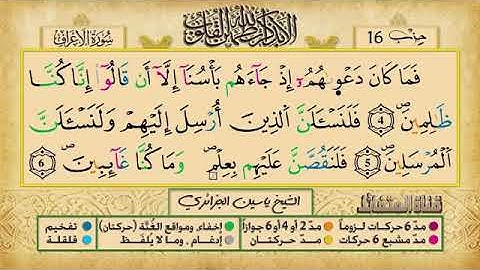 حزب 16
ألا بذكر الله تطمئن القلوب
سورة الأعراف
فَمَا كَانَ دَعْوٜىٰهُمُۥٓ إِذْ جَآءَهُم بَأْسُنَآ إِلَّآ أَن قَالُوٓاْ إِنَّا كُنَّا
ظَٰلِمِينَۖ 4 فَلَنَسْـَٔلَنَّ اَلذِينَ أُرْسِلَ إِلَيْهِمْ وَلَنَسْـَٔلَنَّ
اَلْمُرْسَلِينَۖ 5 فَلَنَقُصَّنَّ عَلَيْهِم بِعِلْمٖۖ وَمَا كُنَّا غَآئِبِينَۖ 6
الشيخ ياسين الجزائري
مدّ 6 حركات لزوماً مدّ 2 أو 4 أو 6 جوازاً إخفاء، ومواقع الغُنَّة (حركتان) تفخيم
مدّ مشبع 6 حركات مدّ حركتان إدغام، وما لا يُلفَظ قلقلة